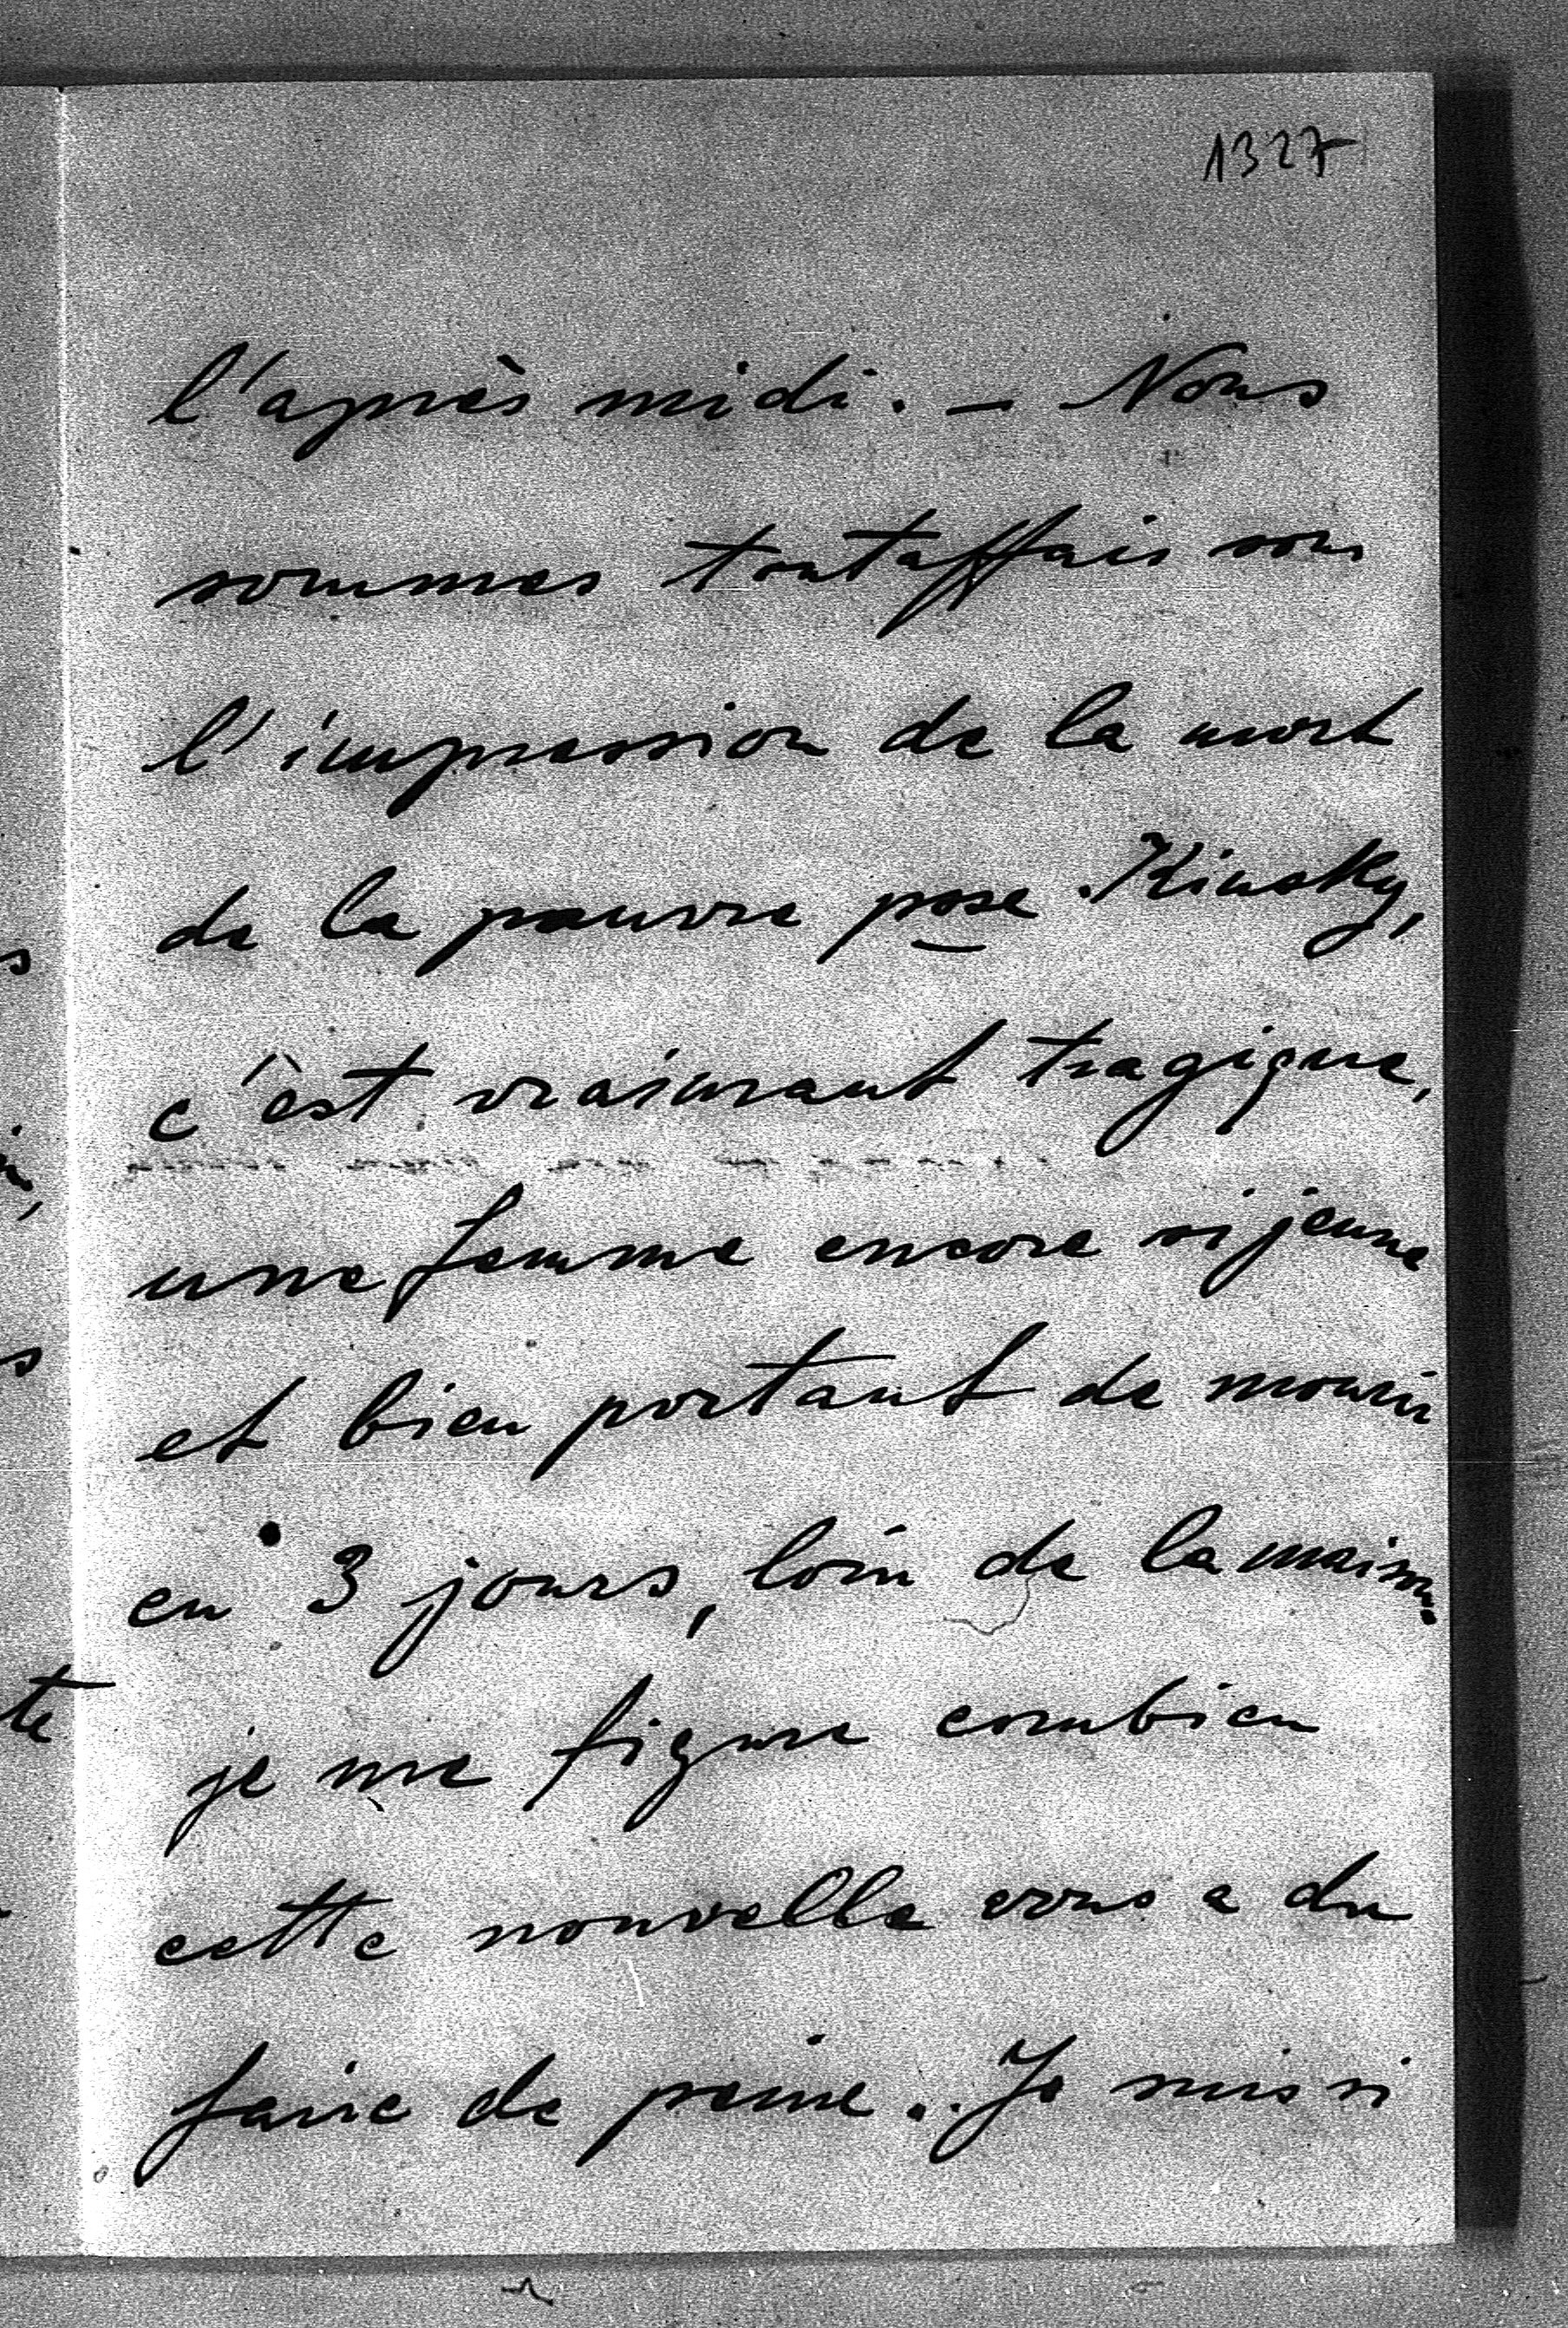 1327
l'après midi. – Nous
sommes toutaffais sous
l'impression de la mort
de la pauvre psse Kinsky,
c'est vraimant tragique,
une femme encore si jeune
et bien portant de mourir
en 3 jours, loin de la maison.
je me figure combien
cette nouvelle vous a du
faire de peine.. Je suis si